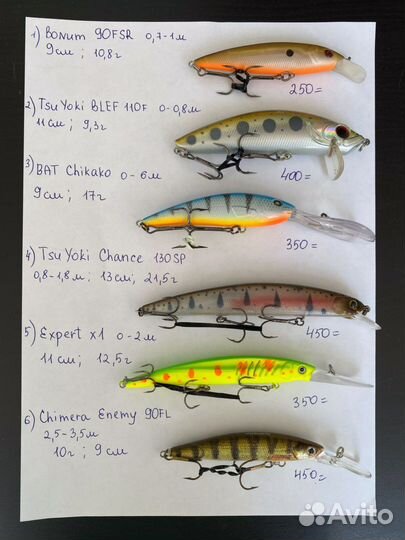 1) Bonum 90FSR 0,7-1м
9см ; 10,8г
250=
2) TsuYoki BLEF 110F 0-0,8м
11см ; 9,3г
400=
3) BAT Chikako 0-6м
9см ; 17г
350=
4) TsuYoki Chance 130SP
0,8-1,8м ; 13см ; 21,5г
450=
5) Expert x1 0-2м
11см ; 12,5г
350=
6) Chimera Enemy 90FL
2,5-3,5м
10г ; 9см
450=
Avito